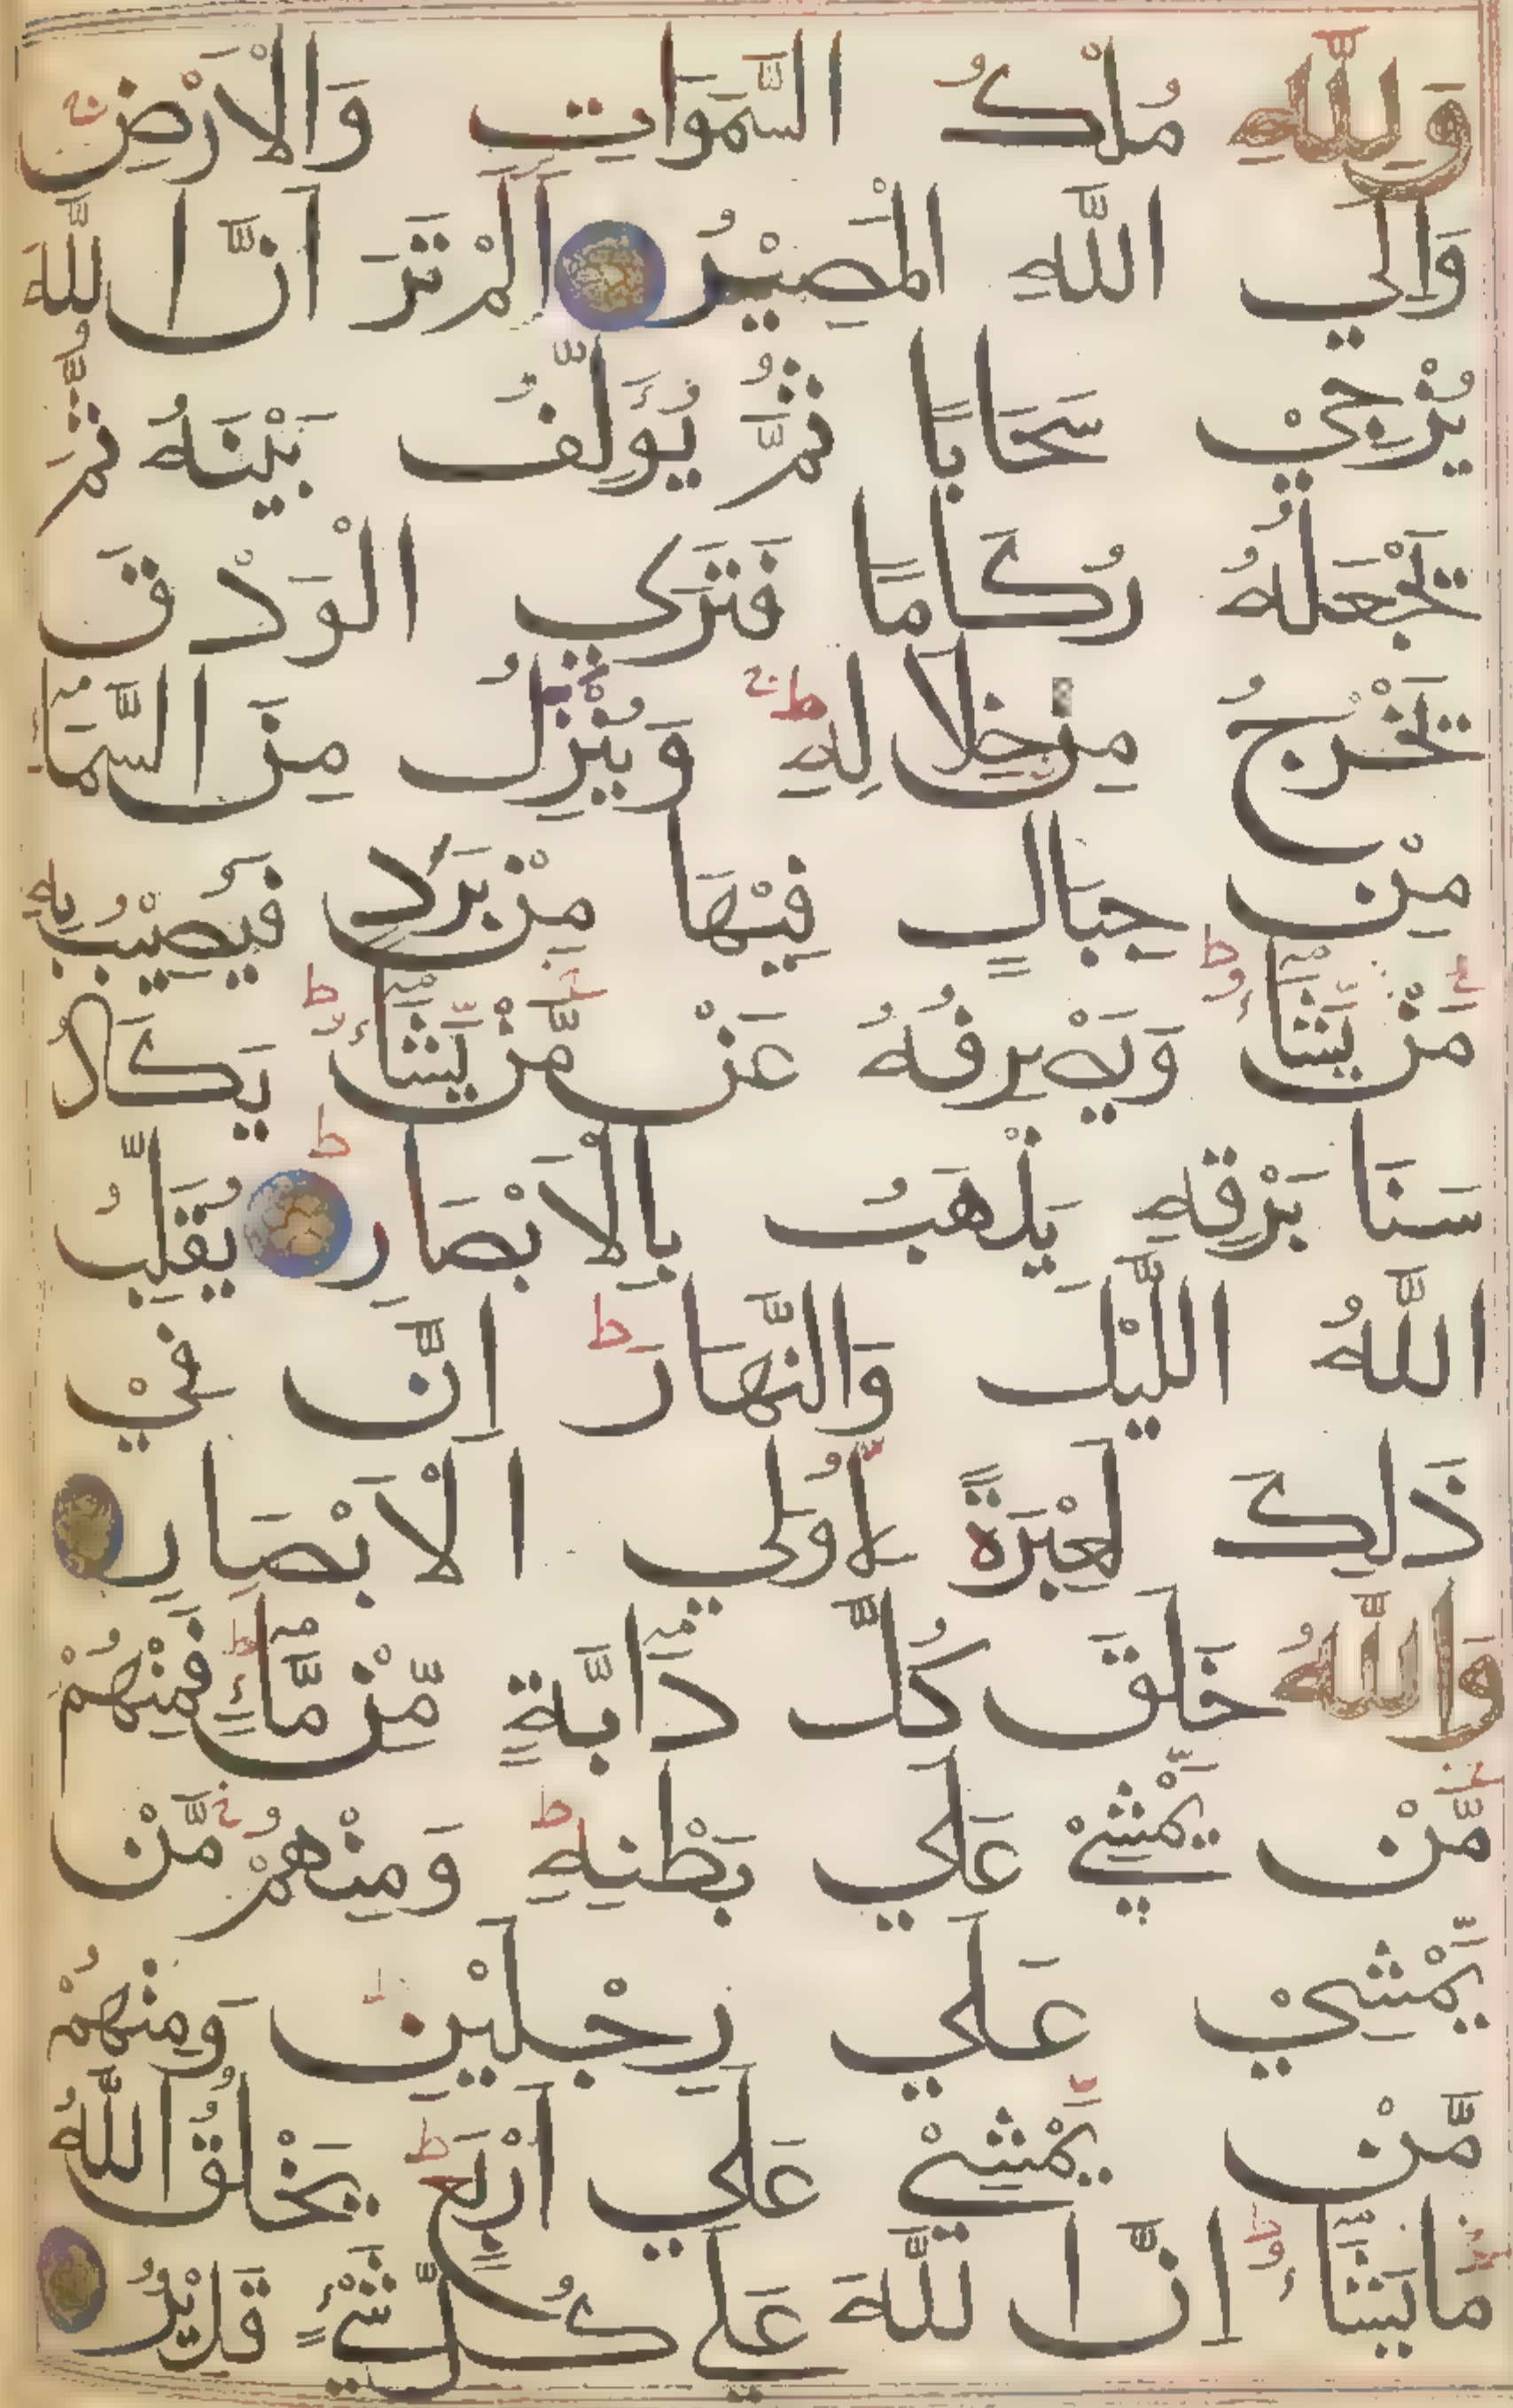 وَلِلّٰهِ مُلْكُ السَّمَوَاتِ وَالْاَرْضِ ج
وَاِلَي اللَّهِ الْمَصِيْرُ اَلَمْ تَرَ اَنَّ اللَّهَ
يُزْجِيْ سَحَابًا ثُمَّ يُؤَلِّفُ بَيْنَهُ ثُمَّ
يَجْعَلُهُ رُكَامًا فَتَرَي الْوَدْقَ
يَخْرُجُ مِنْ خِلَالِهِ ط ج وَيُنَزِّلُ مِنَ السَّمَآءِ
مِنْ جِبَالٍ فِيْهَا مِنْ بَرَدٍ فَيُصِيْبُ بِهِ
مَنْ يَّشَآءُ ط وَيَصْرِفُهُ عَنْ مَّنْ يَّشَآءُ ط يَكَادُ
سَنَا بَرْقِهِ يَذْهَبُ بِالْاَبْصَارِ ط يُقَلِّبُ
اللَّهُ اللَّيْلَ وَالنَّهَارَ ط اِنَّ فِيْ
ذَلِكَ لَعِبْرَةً لِّاُولِي الْاَبْصَارِ
وَاللّٰهُ خَلَقَ كُلَّ دَآبَّةٍ مِّنْ مَّآءٍ ط فَمِنْهُمْ
مَّنْ يَّمْشِيْ عَلَي بَطْنِهِ ط وَمِنْهُمْ مَّنْ
يَّمْشِيْ عَلَي رِجْلَيْنِ وَمِنْهُمْ
مَّنْ يَّمْشِيْ عَلَي اَرْبَعٍ ط يَخْلُقُ اللَّهُ
مَا يَشَآءُ ط اِنَّ اللَّهَ عَلَي كُلِّ شَيْءٍ قَدِيْرٌ